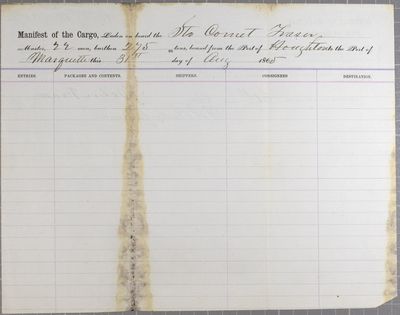 Manifest of the Cargo, Laden on board the Str Comet Fraser,
Master, 22 men, burthen 275 tons, bound from the Port of Houghton to the Port of
Marquette this 31st day of Aug 1865
ENTRIES. PACKAGES AND CONTENTS. SHIPPERS. CONSIGNEES DESTINATION.